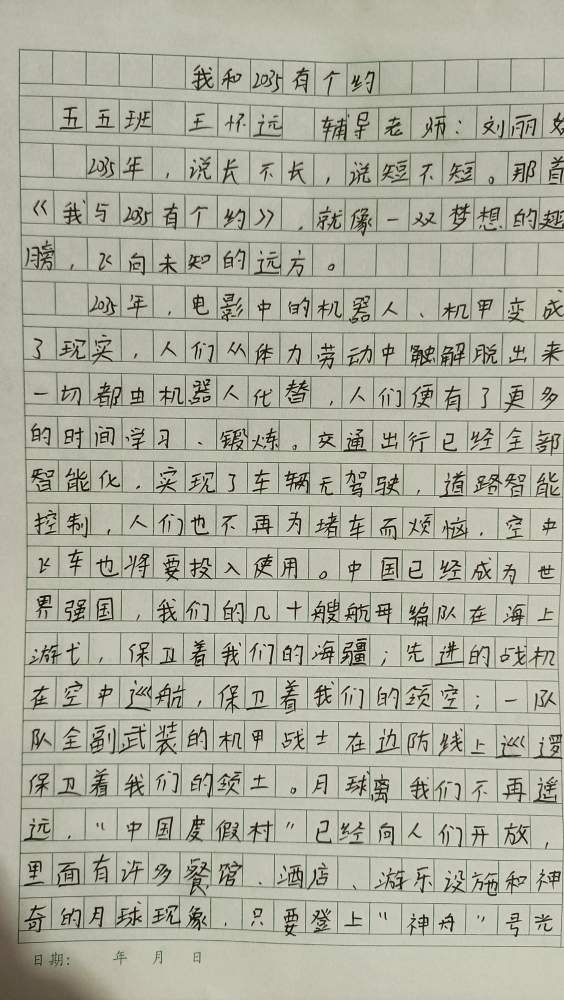 我和2035有个约
五五班 王怀远 辅导老师：刘丽
2035年，说长不长，说短不短。那首
《我与2035有个约》，就像一双梦想的翅
膀，飞向未知的远方。
2035年，电影中的机器人、机甲变成
了现实，人们从体力劳动中触解脱出来
一切都由机器人代替，人们便有了更多
的时间学习、锻炼。交通出行已经全部
智能化，实现了车辆无驾驶，道路智能
控制，人们也不再为堵车而烦恼，空中
飞车也将要投入使用。中国已经成为世
界强国，我们的几十艘航母编队在海上
游弋，保卫着我们的海疆；先进的战机
在空中巡航，保卫着我们的领空；一队
队全副武装的机甲战士在边防线上巡逻
保卫着我们的领土。月球离我们不再遥
远，“中国度假村”已经向人们开放，
里面有许多餐馆、酒店、游乐设施和神
奇的月球现象，只要登上“神舟”号光
日期： 年 月 日